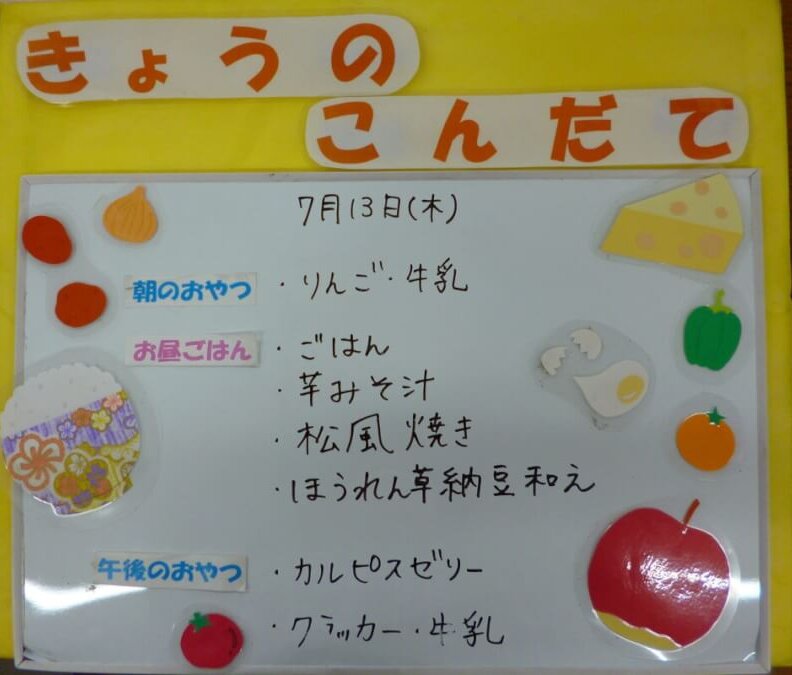 きょうの
こんだて
7月13日(木)
朝のおやつ ・りんご・牛乳
お昼ごはん ・ごはん
・芋みそ汁
・松風焼き
・ほうれん草納豆和え
午後のおやつ ・カルピスゼリー
・クラッカー・牛乳